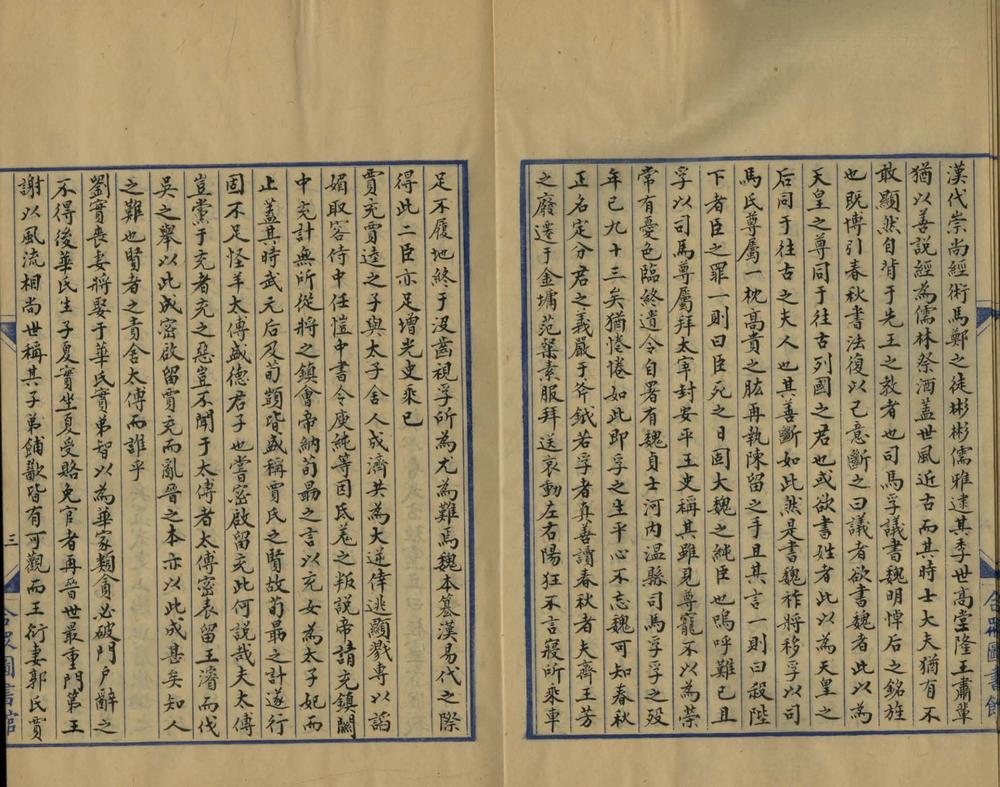 漢代崇尚經術馬鄭之徒彬彬儒雅逮其季世高堂隆王肅輩
猶以善説經為儒林祭酒蓋世風近古而其時士大夫猶有不
敢顯然自背于先王之教者也司馬孚議書魏明悼后之銘旌
也既博引春秋書法復以己意斷之曰議者欲書魏者此以為
天皇之尊同于往古列國之君也或欲書姓者此以為天皇之
后同于往古之夫人也其善斷如此然是書魏祚將移孚以司
馬氏尊屬一枕高貴之肱再執陳留之手且其言一則曰殺陛
下者臣之罪一則曰臣死之日固大魏之純臣也嗚呼難已且
孚以司馬尊屬拜太宰封安平王史稱其雖見尊寵不以為榮
常有憂色臨終遺令自署有魏貞士河内溫縣司馬孚孚之殁
年已九十三矣猶惓惓如此即孚之生平心不忘魏可知春秋
正名定分君之義嚴于斧鉞若孚者真善讀春秋者夫齊王芳
之廢遷于金墉范粲素服拜送哀動左右陽狂不言寢所乘車
足不履地終于没齒視孚所為尤為難焉魏本篡漢易代之際
得此二臣亦足增光史乘已
賈充賈逵之子與太子舍人成濟共為大逆倖逃顯戮專以謟
媚取容侍中任愷中書令庾純等因氐羌之叛説帝請充鎮關
中充計無所從將之鎮會帝納荀勗之言以充女為太子妃而
止蓋其時武元后及荀顗皆盛稱賈氏之賢故荀勗之計遂行
固不足怪羊太傅盛德君子也嘗密啟留充此何説哉夫太傅
豈黨于充者充之惡豈不聞于太傅者太傅密表留王濬而伐
吳之舉以此成密啟留賈充而亂晉之本亦以此成甚矣知人
之難也賢者之責舍太傅而誰乎
劉寔喪妻將娶于華氏寔弟智以為華家類貪必破門户辭之
不得後華氏生子夏寔坐夏受賂免官者再晉世最重門第王
謝以風流相尚世稱其子弟餔歠皆有可觀而王衍妻郭氏賈
三
合眾圖書館